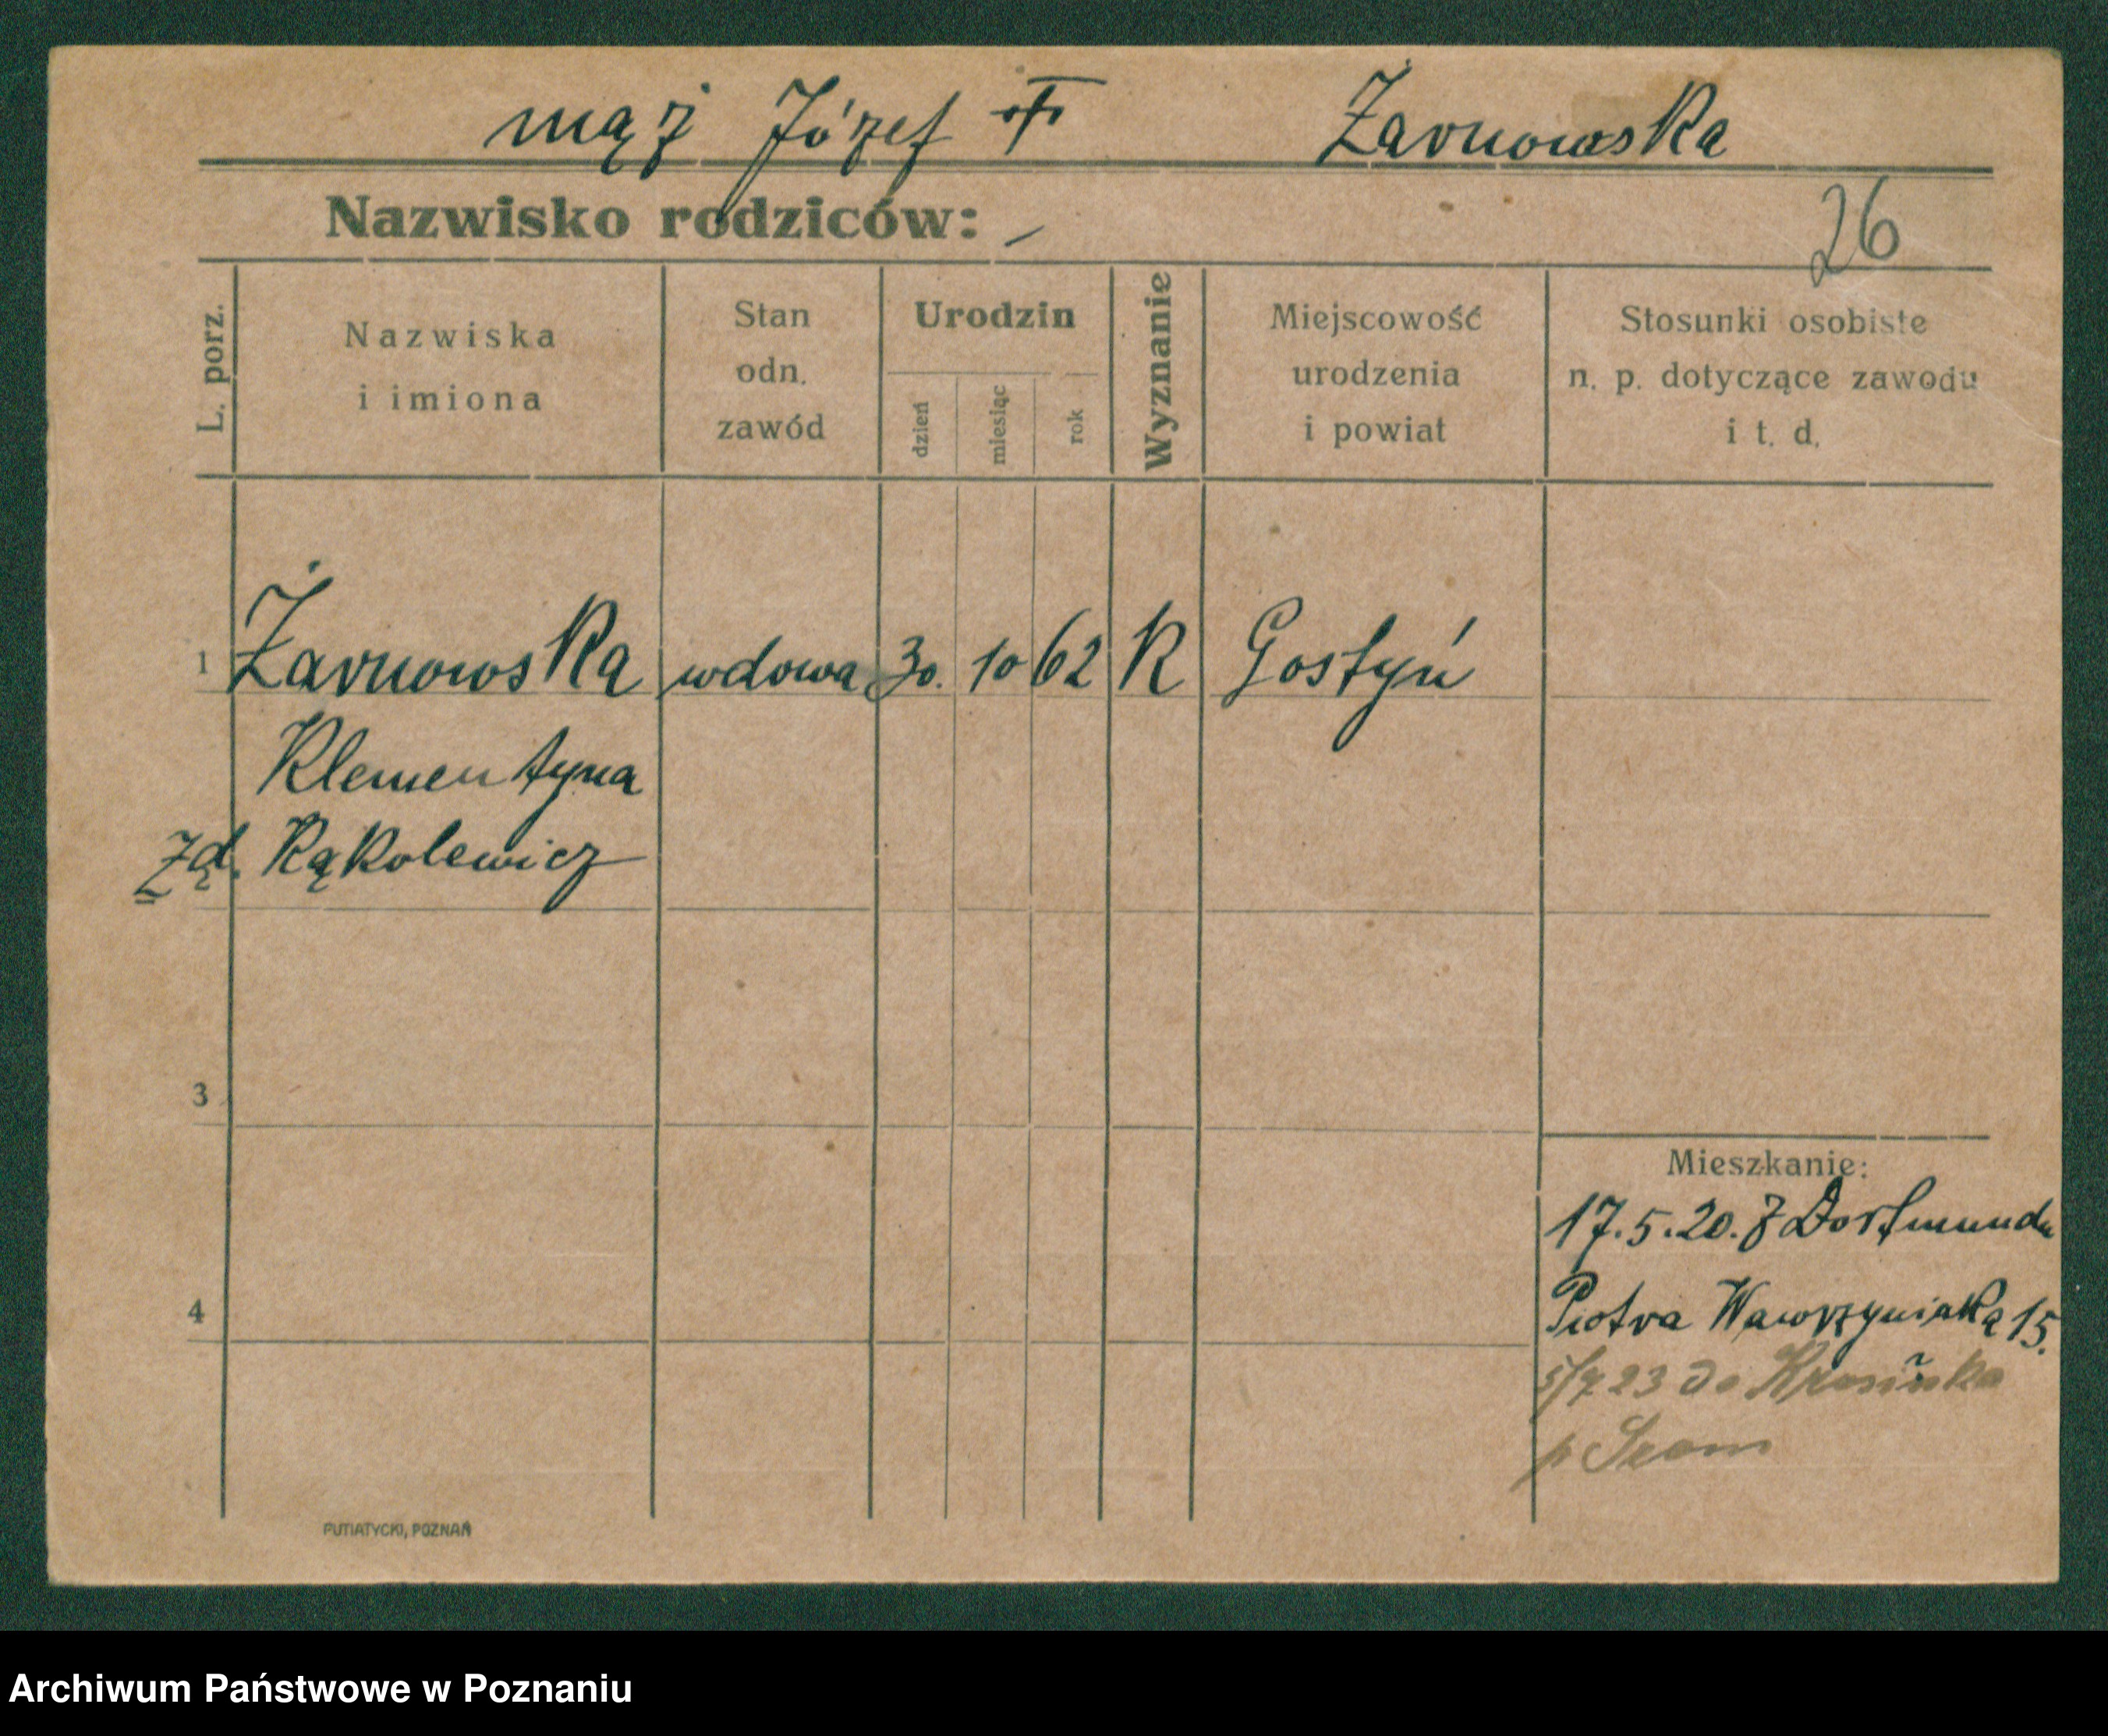 mąż Józef ✝ Żarnowska
Nazwisko rodziców: -
26
L. porz.
Nazwiska
i imiona
Stan
odn.
zawód
Urodzin
dzień
miesiąc
rok
Wyznanie
Miejscowość
urodzenia
i powiat
Stosunki osobiste
n. p. dotyczące zawodu
i t. d.
1 Żarnowska wdowa 30. 10 62 K Gostyń
Klementyna
zd. Kąkolewicz
3
4
Mieszkanie:
17.5.20. z Dortmundu
Piotra Wawrzyniaka 15.
5/7 23 do Krosinka
p Srem
PUTIATYCKI, POZNAŃ
Archiwum Państwowe w Poznaniu